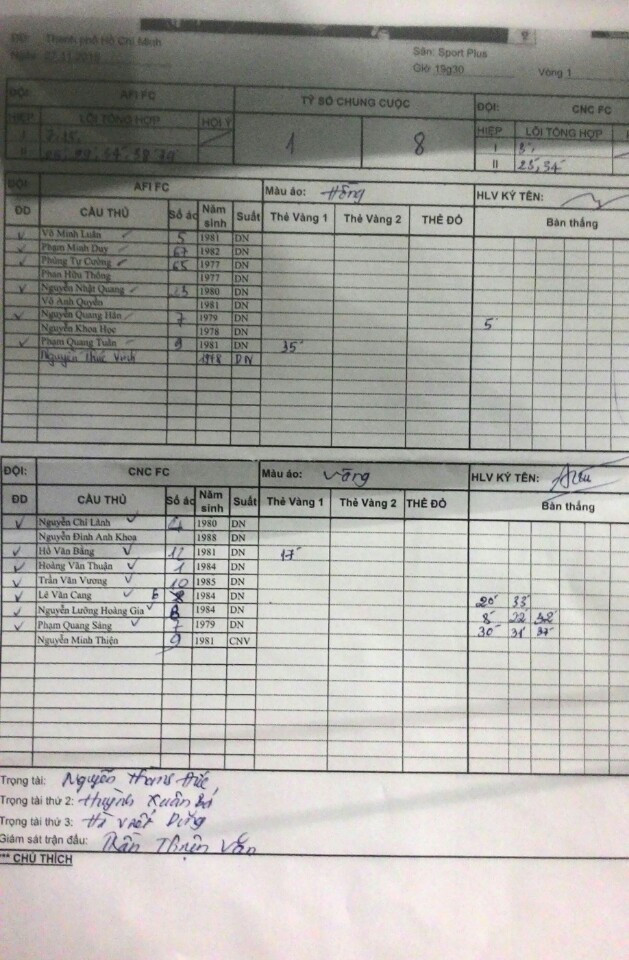 ĐĐ: Thành phố Hồ Chí Minh
Ngày: 07.11.2015 Sân: Sport Plus
Giờ 19g30 Vòng 1
ĐỘI: AFI FC TỶ SỐ CHUNG CUỘC ĐỘI: CNC FC
HIỆP LỖI TỔNG HỢP HỘI Ý 1 8 HIỆP LỖI TỔNG HỢP
I I
II II 25, 34
ĐỘI: AFI FC Màu áo: Hồng HLV KÝ TÊN:
ĐD CẦU THỦ Số áo Năm sinh Suất Thẻ Vàng 1 Thẻ Vàng 2 THẺ ĐỎ Bàn thắng
Võ Minh Luân 5 1981 DN
Phạm Minh Duy 67 1982 DN
Phùng Tự Cường 65 1977 DN
Phan Hữu Thông 1977 DN
Nguyễn Nhật Quang 23 1980 DN
Võ Anh Quyền 1981 DN
Nguyễn Quang Hân 7 1979 DN 5'
Nguyễn Khoa Học 1978 DN
Phạm Quang Tuân 9 1981 DN 35'
Nguyễn Thức Vinh 1978 DN
ĐỘI: CNC FC Màu áo: Vàng HLV KÝ TÊN:
ĐD CẦU THỦ Số áo Năm sinh Suất Thẻ Vàng 1 Thẻ Vàng 2 THẺ ĐỎ Bàn thắng
Nguyễn Chí Lành 1980 DN
Nguyễn Đình Anh Khoa 1988 DN
Hồ Văn Bằng 12 1981 DN 17'
Hoàng Văn Thuận 1 1984 DN
Trần Văn Vương 10 1985 DN
Lê Văn Cang 1984 DN 20' 33'
Nguyễn Lưỡng Hoàng Gia 1984 DN 8' 22' 32'
Phạm Quang Sáng 7 1979 DN 30' 31' 37'
Nguyễn Minh Thiện 9 1981 CNV
Trọng tài: Nguyễn Đức
Trọng tài thứ 2: Huỳnh Xuân
Trọng tài thứ 3: Hà Dũng
Giám sát trận đấu: Trần Thiện Văn
*** CHÚ THÍCH